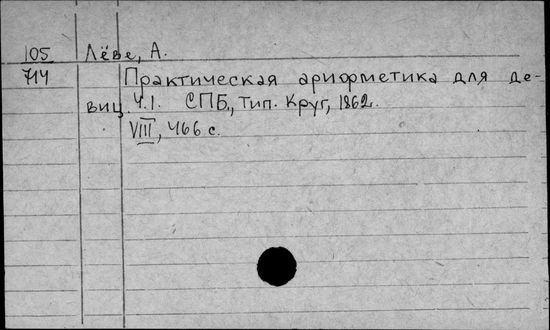 105 Лёве, А.
714 Практическая ариөметика для де-
виц. Ч.1. СПБ., Тип. Круг, 1862.
VIII, 466 с.